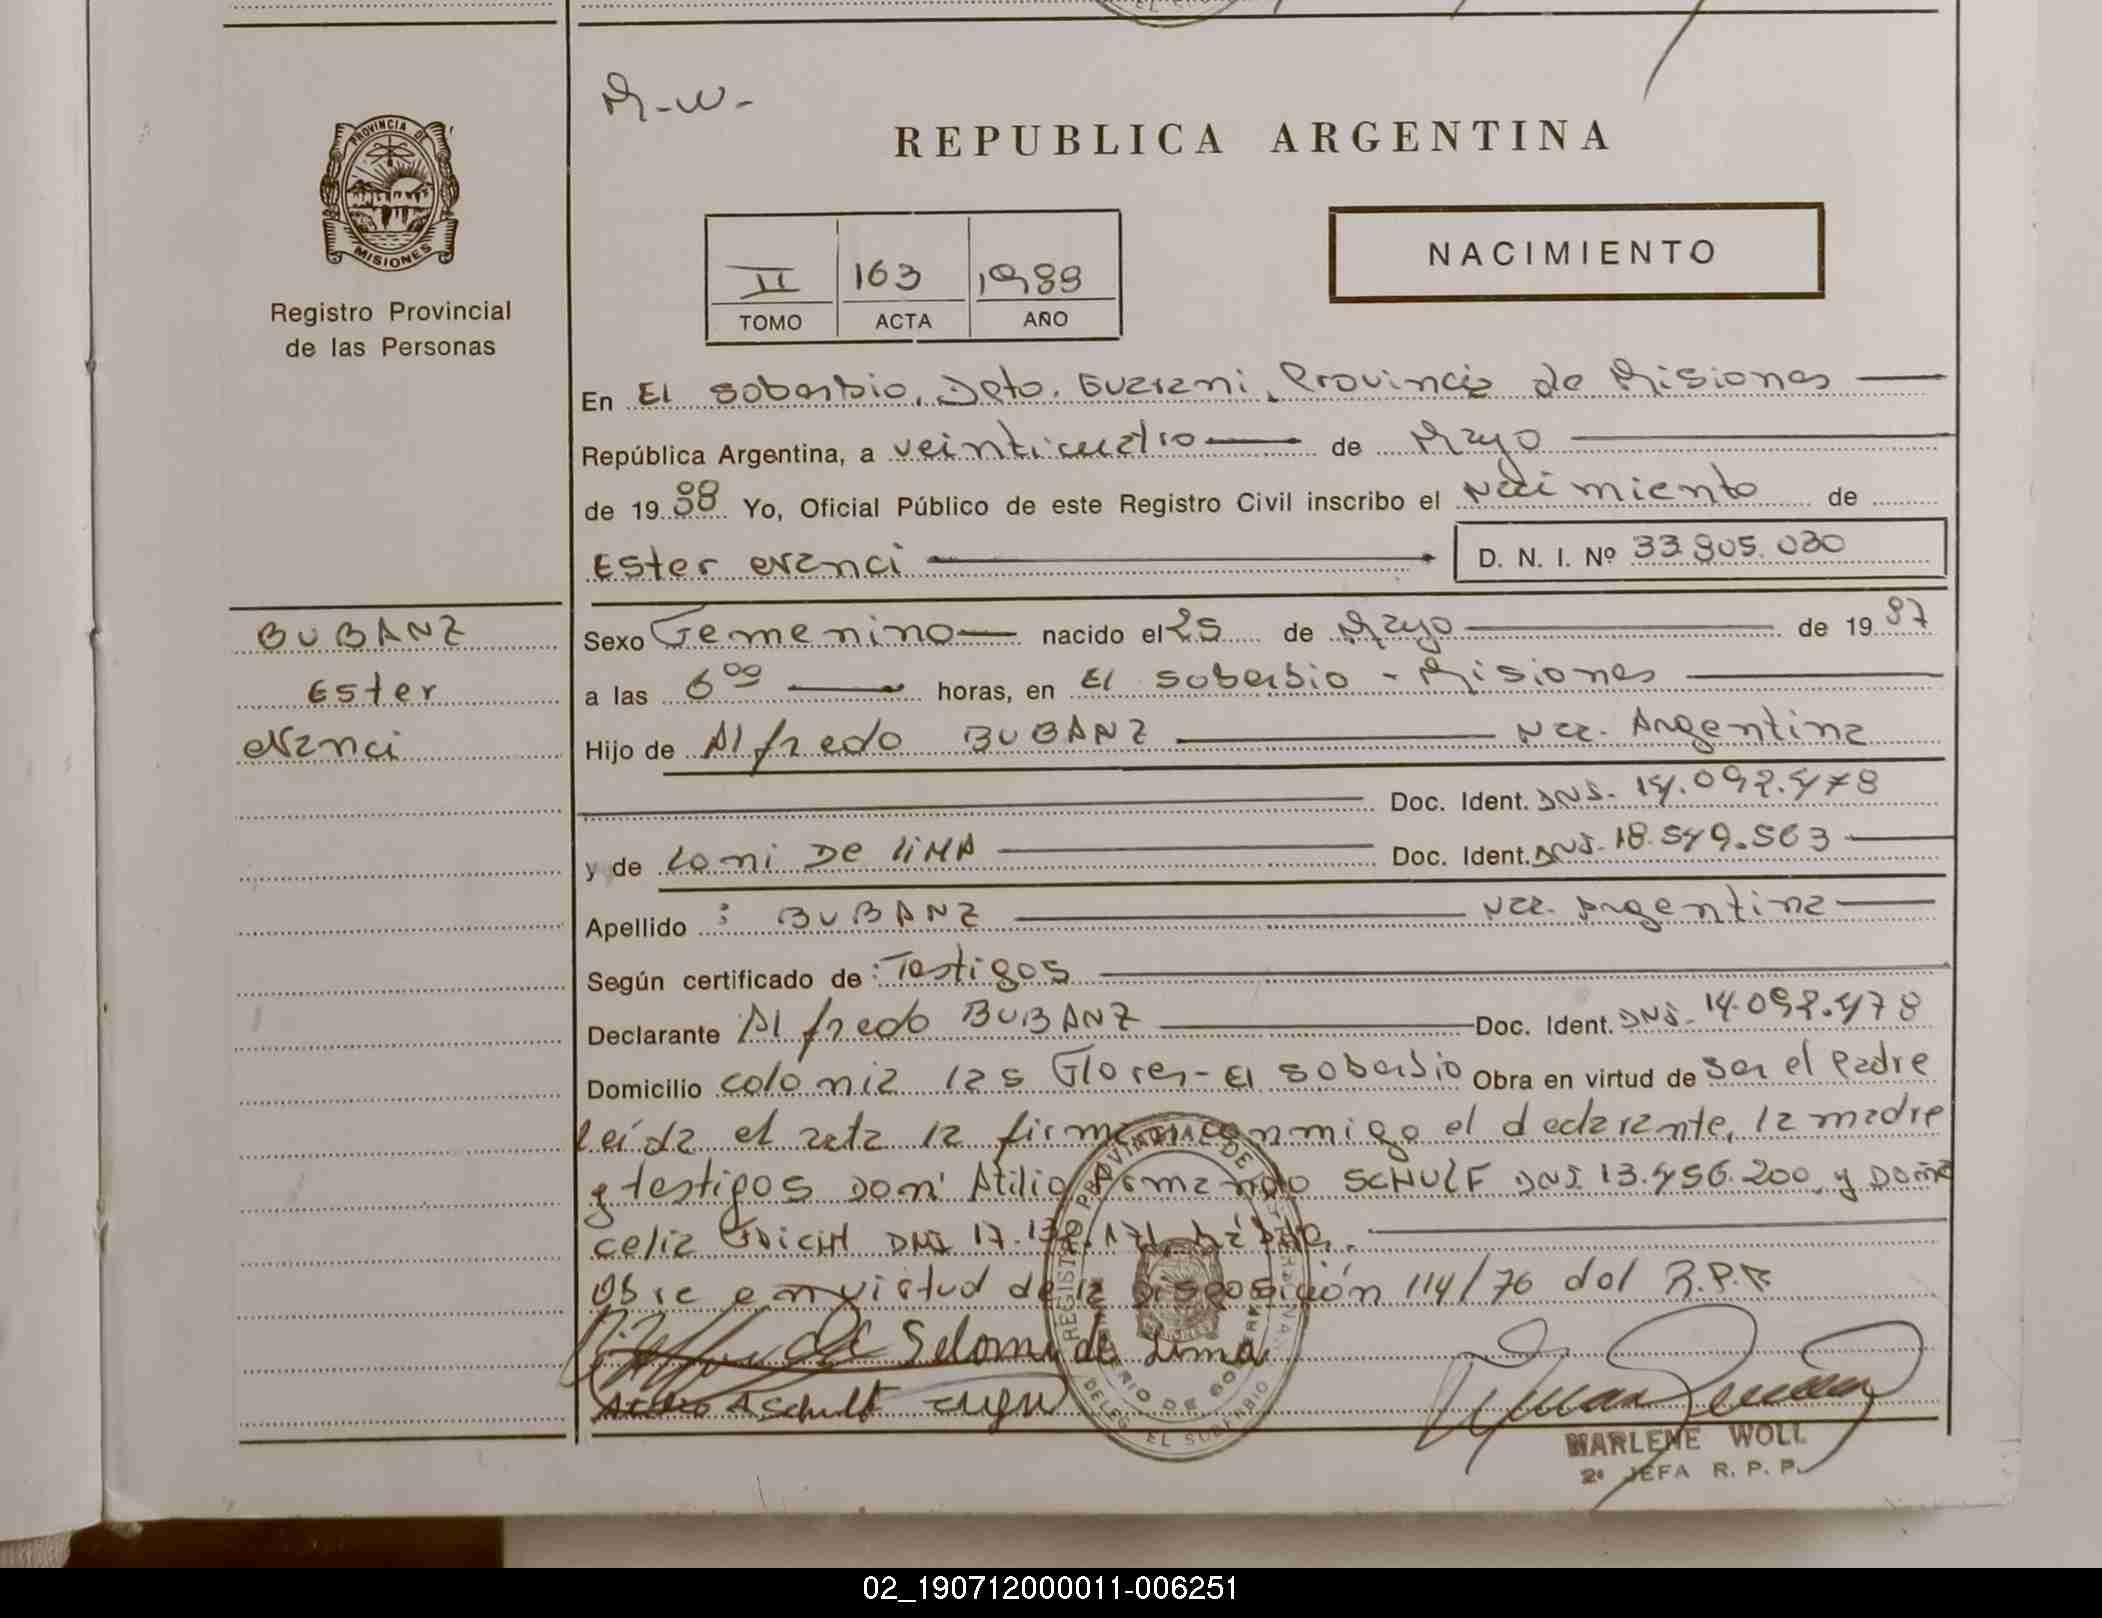 M-W-
PROVINCIA DE
MISIONES
Registro Provincial
de las Personas
REPUBLICA ARGENTINA
II 163 1988
TOMO ACTA AÑO
NACIMIENTO
En El Soberbio, Dpto. Guarani, Provincia de Misiones
República Argentina, a veinticuatro de Mayo
de 1988 Yo, Oficial Público de este Registro Civil inscribo el Nacimiento de
Ester Nanci D. N. I. Nº 33.905.030
BUBANZ
Ester
Nanci
Sexo Femenino nacido el 25 de Mayo de 1987
a las 6 00 horas, en El Soberbio - Misiones
Hijo de Alfredo BUBANZ Nac. Argentina
Doc. Ident. DNI. 14.092.478
y de Loni De LIMA Doc. Ident. DNI. 18.549.563
Apellido : BUBANZ Nac. Argentina
Según certificado de : Testigos
Declarante Alfredo BUBANZ Doc. Ident. DNI. 14.092.478
Domicilio colonia las Flores - El Soberbio Obra en virtud de Ser el Padre
leída el acta la firman conmigo el declarante, la madre
y testigos Don Atilio Armando SCHULF DNI 13.456.200, y Doña
celia DNI 17.
Obra en virtud de la Disposición 114/76 del R.P.P.
Seloni de Lima
A Schult
REGISTRO PROVINCIAL DE
MINISTERIO DE GOBIERNO
DELEG. EL SOBERBIO
MARLENE WOLL
2ª JEFA R. P. P.
02_190712000011-006251